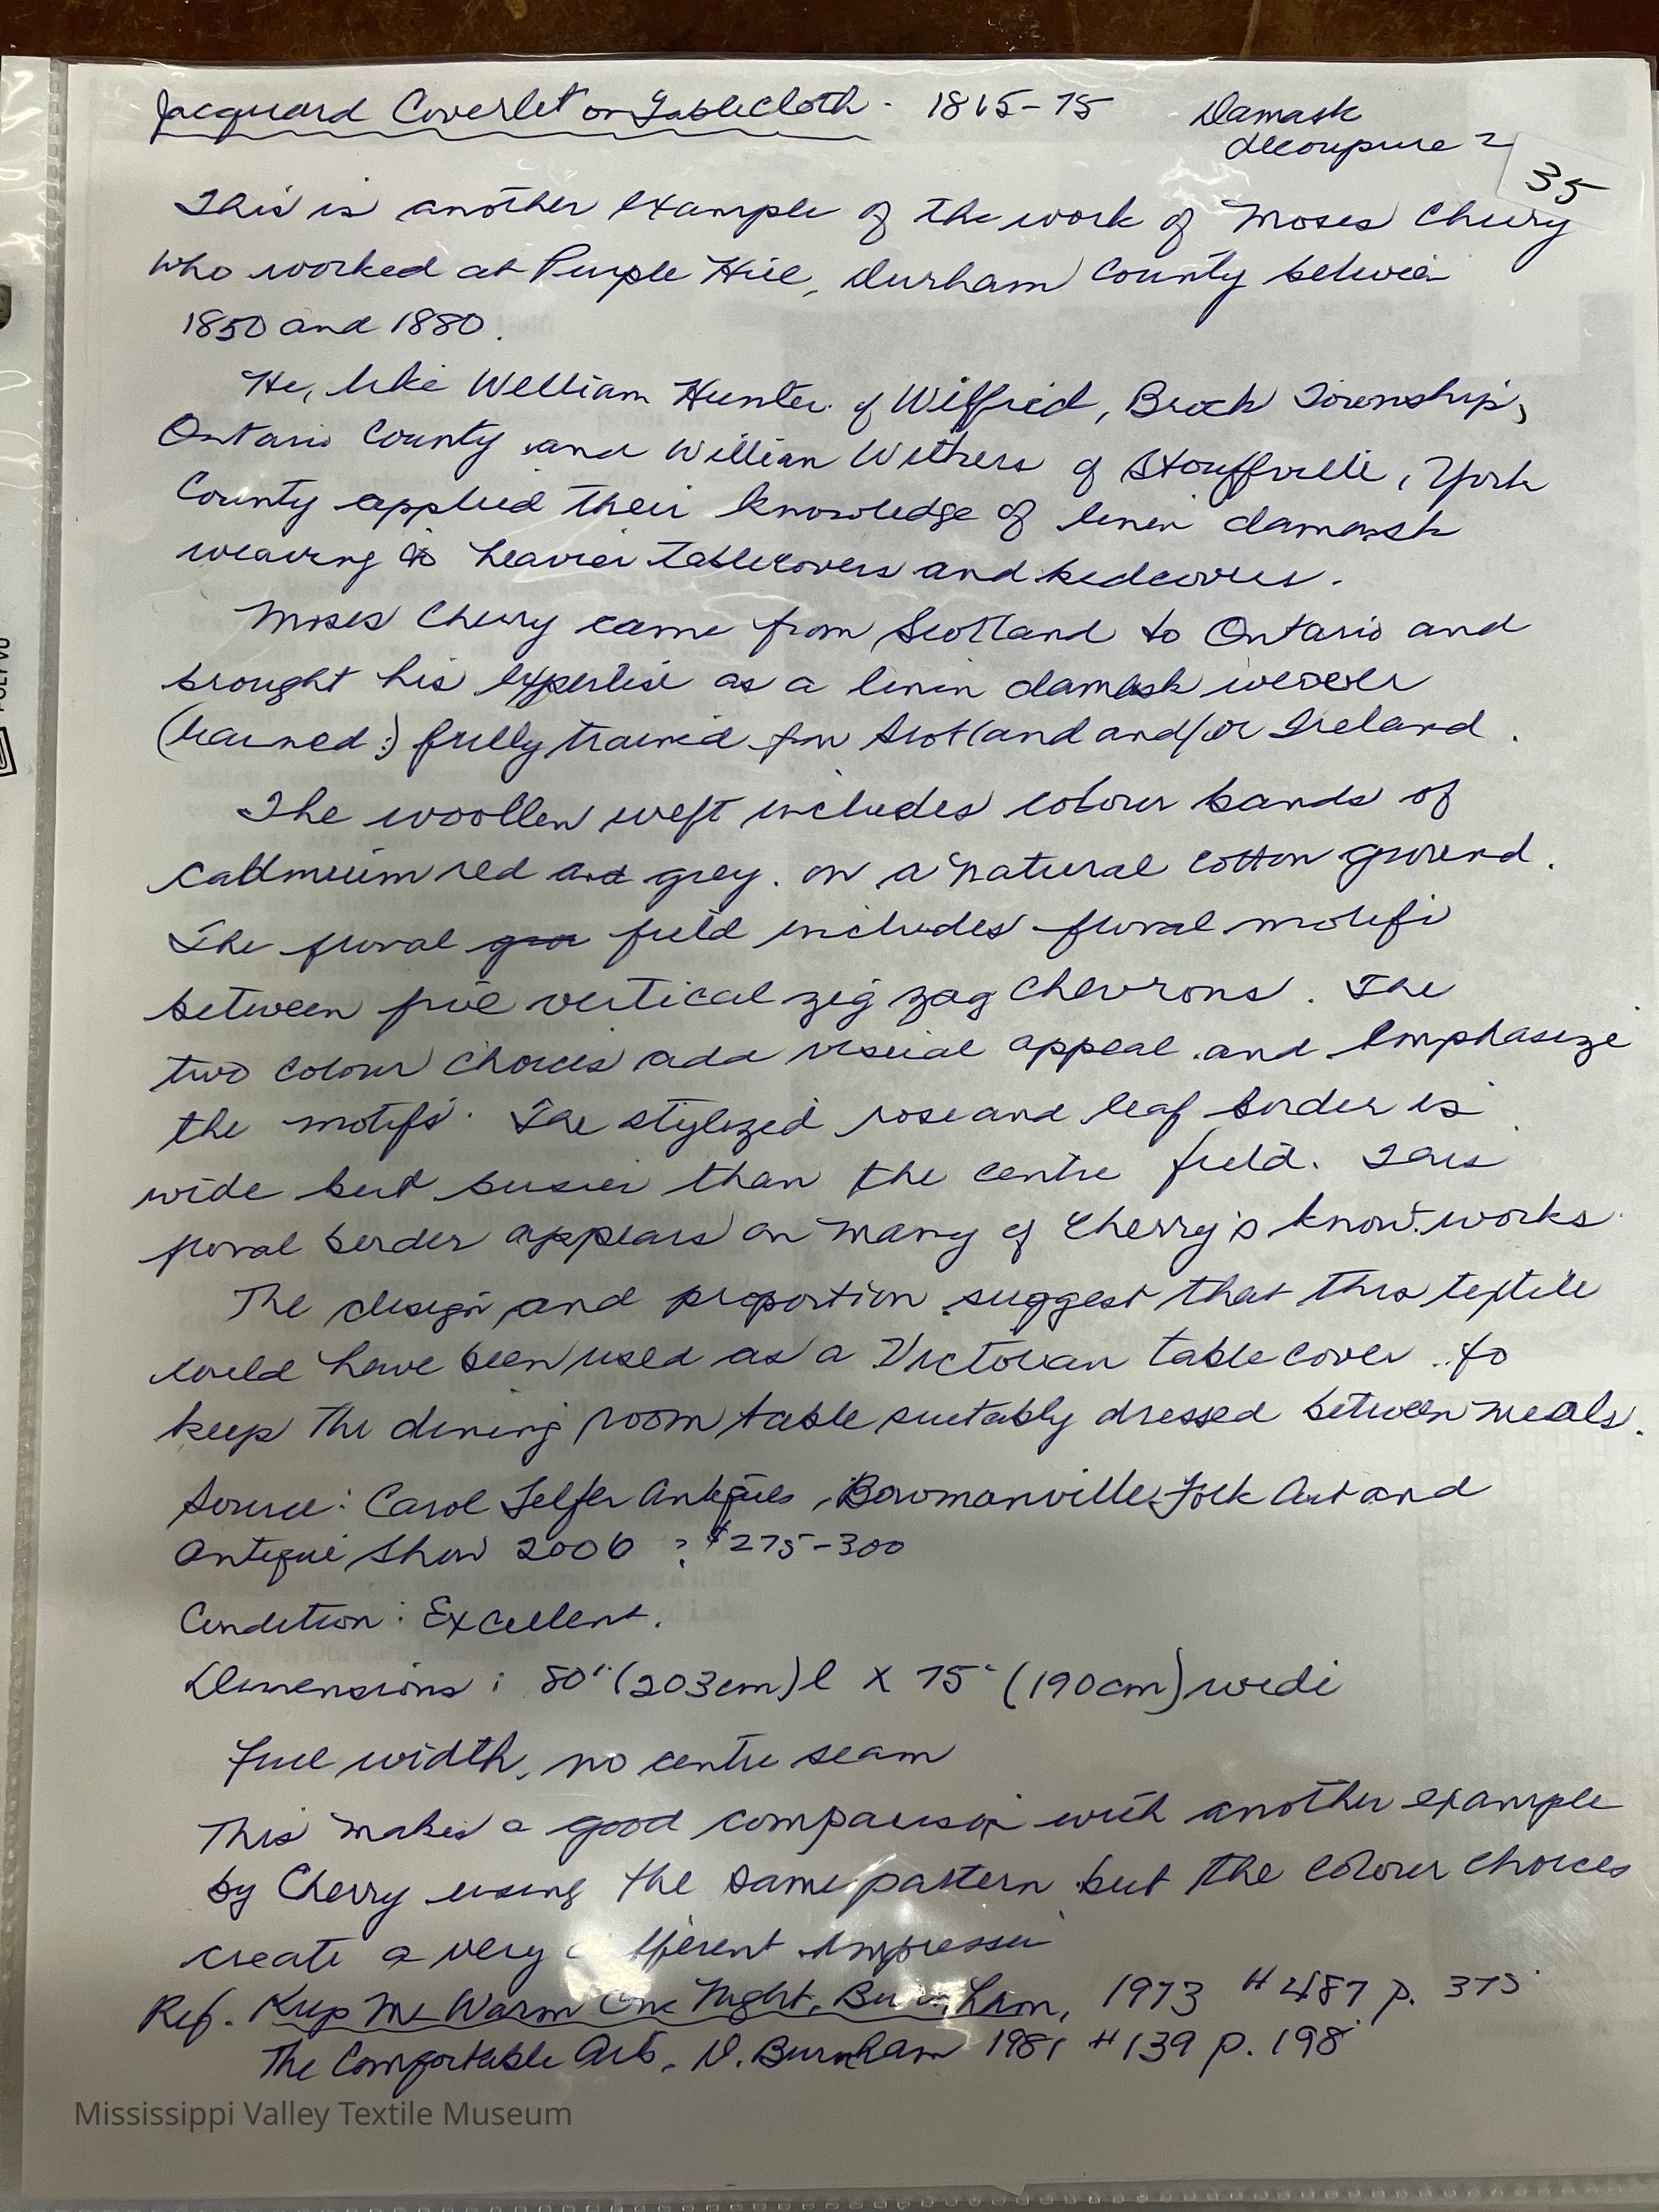 Jacquard Coverlet or Tablecloth - 1865-75 Damask
decoupure ?
35
This is another example of the work of Moses Cherry
who worked at Purple Hill, Durham County between
1850 and 1880.
He, like William Hunter of Wilfried, Brock Township,
Ontario County and William Withers of Stouffville, York
County applied their knowledge of linen damask
weaving to heavier tablecovers and bedcovers.
Moses Cherry came from Scotland to Ontario and
brought his expertise as a linen damask weaver
(learned?) fully trained from Scotland and/or Ireland.
The woollen weft includes colour bands of
cadmium red and grey. on a natural cotton ground.
The floral field includes floral motifs
between five vertical zig zag chevrons. The
two colour choices add visual appeal and emphasize
the motifs. The stylized rose and leaf border is
wide but busier than the centre field. This
floral border appears on many of Cherry's know. works.
The design and proportion suggest that this textile
could have been used as a Victorian table cover to
keep the dining room table suitably dressed between meals.
Source: Carol Telfer Antiques, Bowmanville Folk Art and
Antique Show 2006 ? $275-300
Condition: Excellent.
Dimensions: 80" (203cm) l X 75" (190cm) wide
Full width, no centre seam
This makes a good comparison with another example
by Cherry using the same pattern but the colour choices
create a very different impression
Ref. Keep Me Warm One Night, Burnham, 1973 #487 p. 375
The Comfortable Arts, D. Burnham 1981 #139 p. 198
Mississippi Valley Textile Museum